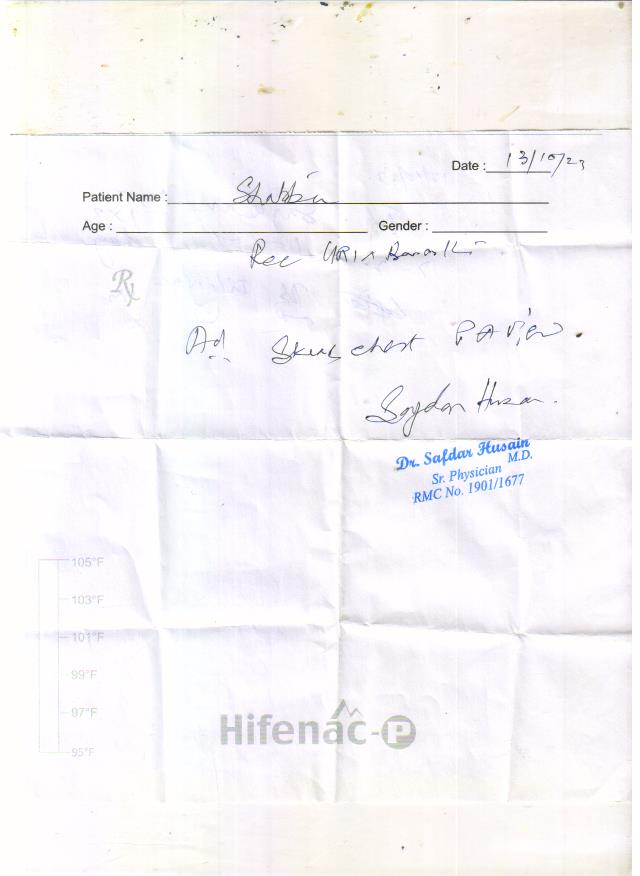 Date : 13/10/23
Patient Name :
Age : Gender :
Rec URI
Rx
Ad chest PA View.
Dr. Safdar Husain
M.D.
Sr. Physician
RMC No. 1901/1677
105°F
103°F
101°F
99°F
97°F
95°F
Hifenac-P